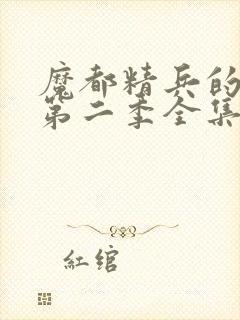 魔都精兵的
第二季全集
紅绾